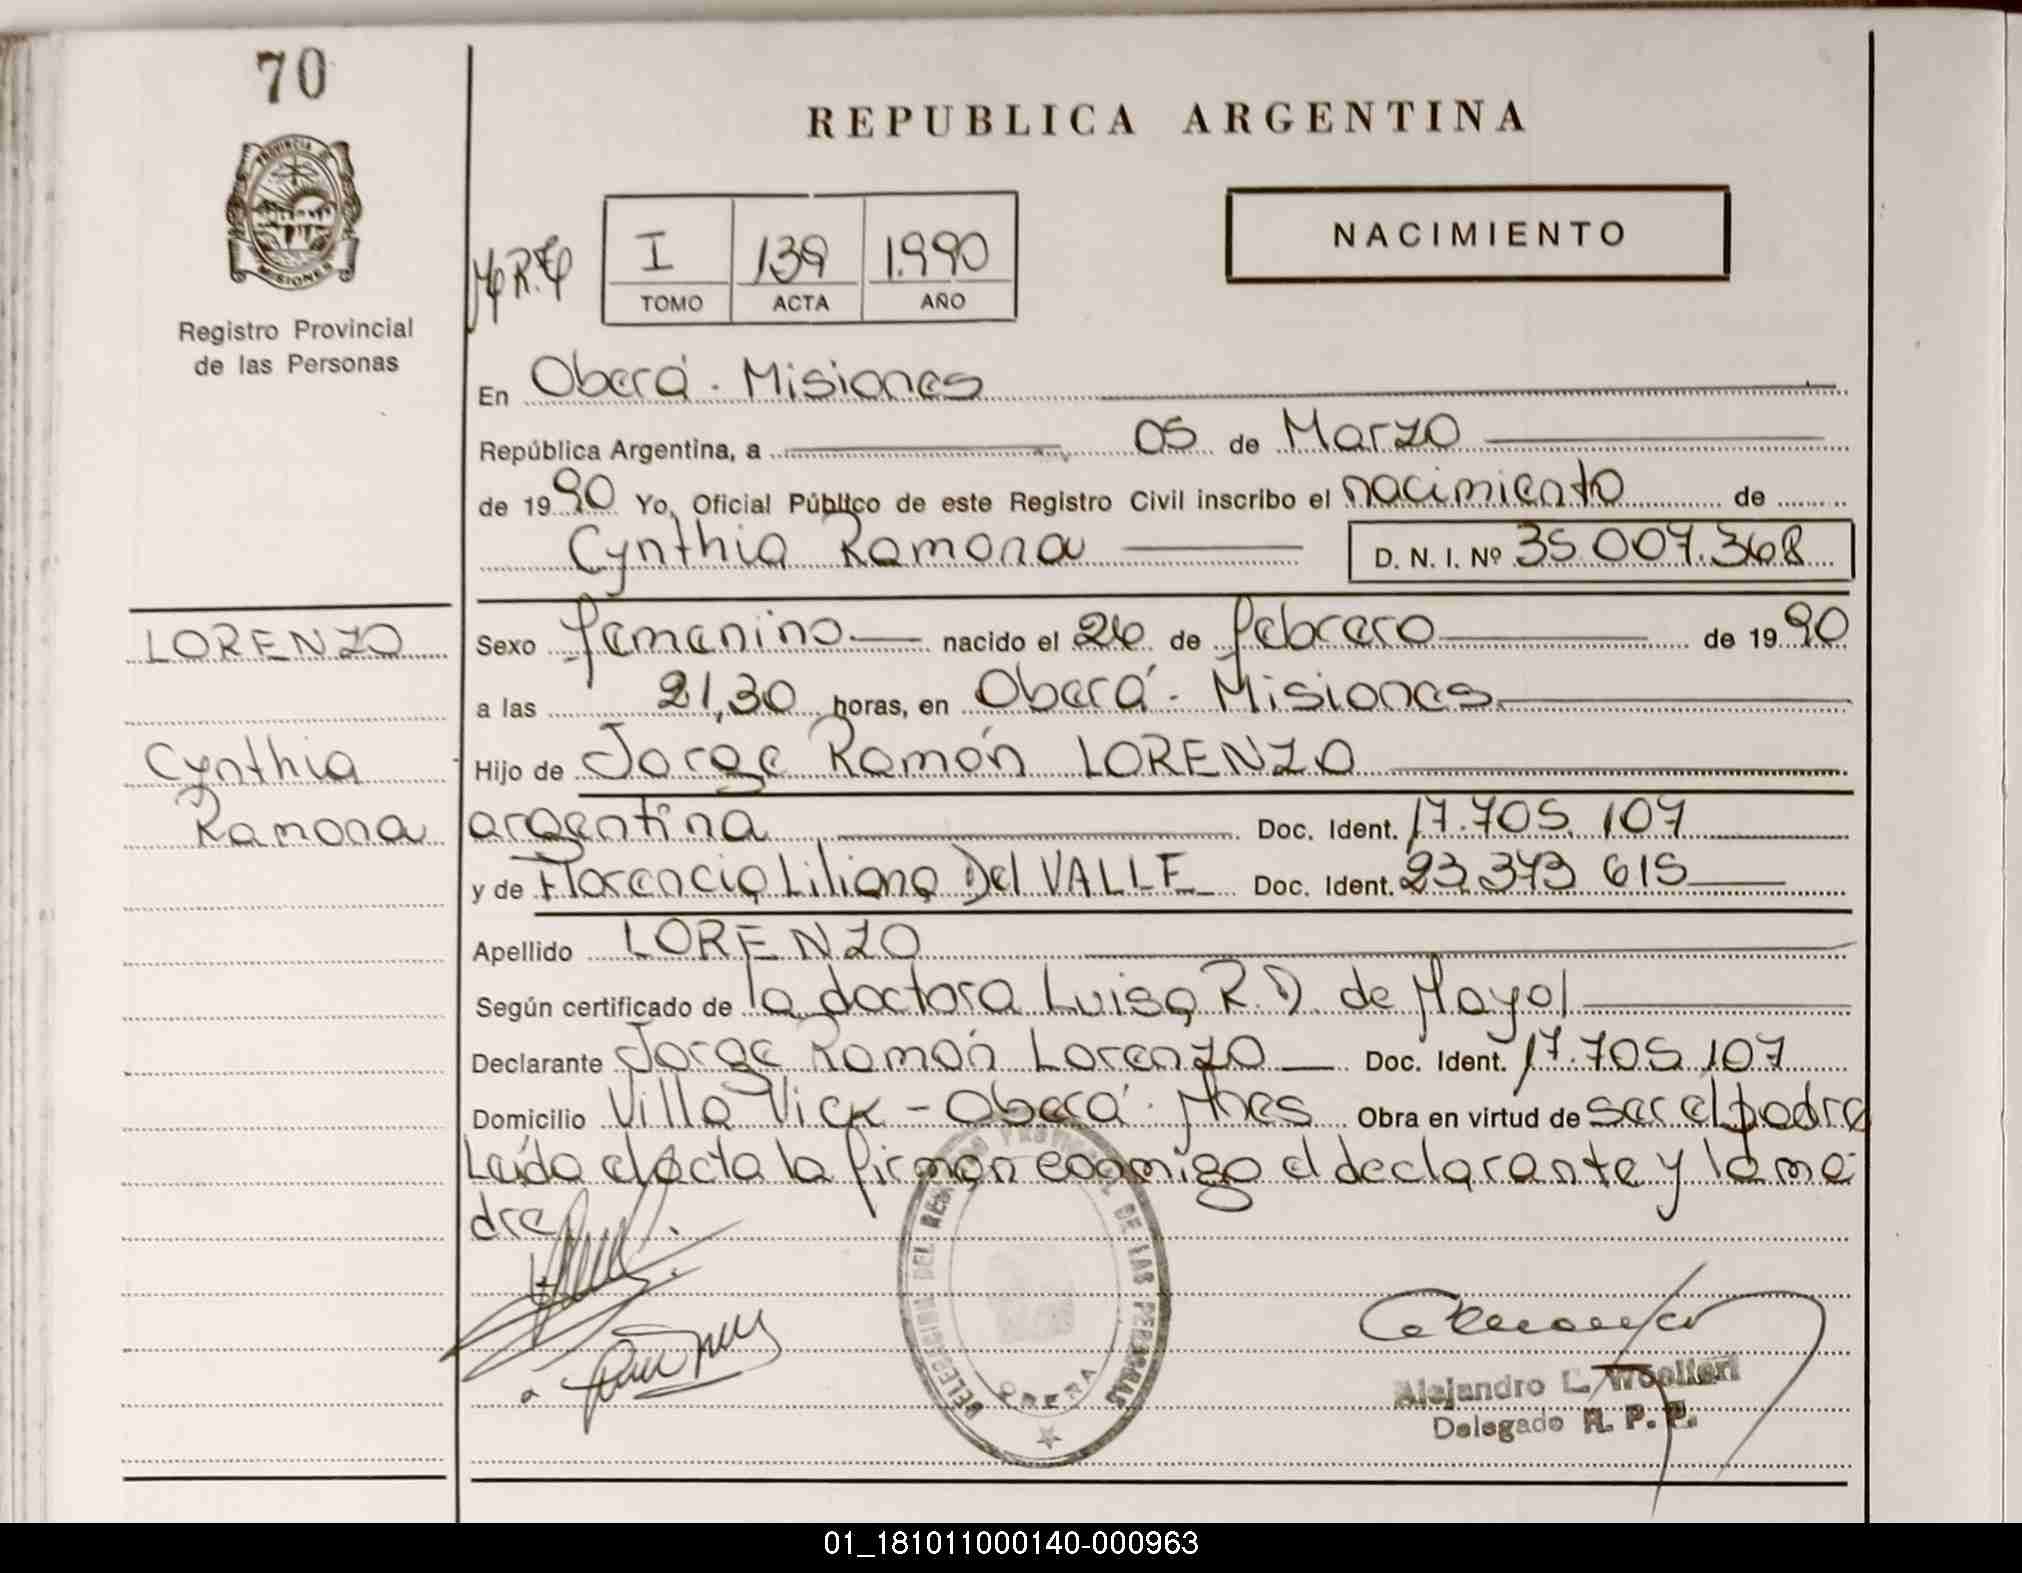 70
PROVINCIA DE
MISIONES
Registro Provincial
de las Personas
REPUBLICA ARGENTINA
I 139 1.990
TOMO ACTA AÑO
NACIMIENTO
En Oberá - Misiones
República Argentina, a 05 de Marzo
de 1990 Yo, Oficial Público de este Registro Civil inscribo el nacimiento de
Cynthia Ramona D. N. I. Nº 35.007.368
LORENZO
Sexo femenino nacido el 26 de febrero de 1990
a las 21,30 horas, en Oberá - Misiones
Cynthia
Ramona
Hijo de Jorge Ramón LORENZO
argentina Doc. Ident. 17.705.107
y de Florencia Liliana Del VALLE Doc. Ident. 23.373 615
Apellido LORENZO
Según certificado de la doctora Luisa R. D. de Mayol
Declarante Jorge Ramón Lorenzo Doc. Ident. 17.705.107
Domicilio Villa Vick - Oberá - Mnes Obra en virtud de ser el padre
Leída el acta la firman conmigo el declarante y la ma-
dre
DELEGACION DEL REGISTRO PROVINCIAL DE LAS PERSONAS
OBERA
Alejandro L.
Delegado R. P. P.
01_181011000140-000963